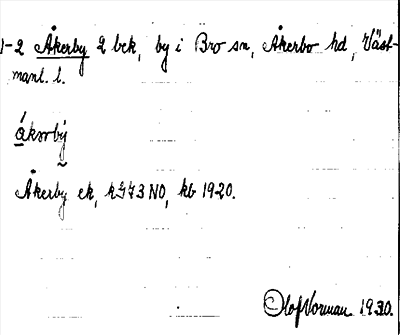 1-2 Åkerby 2 bek, by i Bro sn, Åkerbo hd, Väst-
manl. l.
ákərbý
Åkerby ek, NO, kb 1920.
Olof Norman 1930.